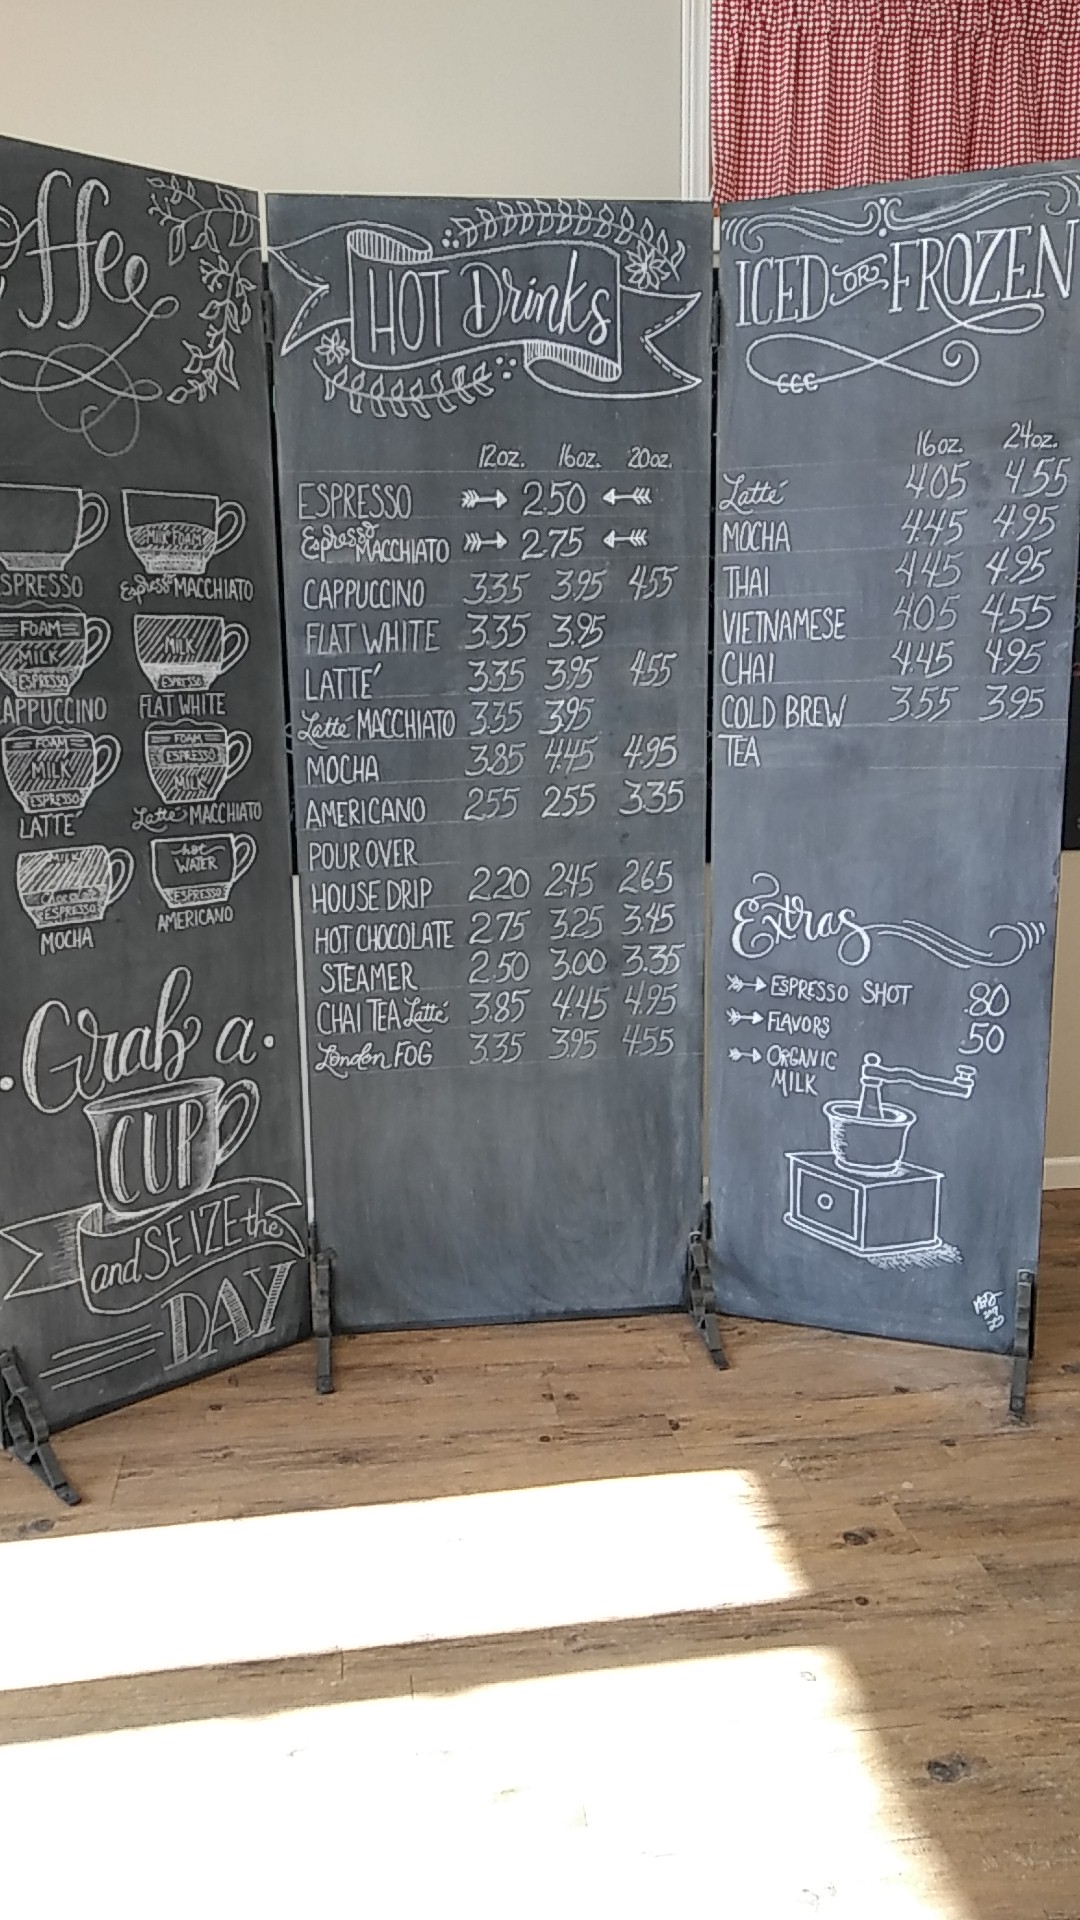 offee
ESPRESSO
MILK FOAM
Espresso MACCHIATO
FOAM
MILK
ESPRESSO
CAPPUCCINO
MILK
ESPRESSO
FLAT WHITE
FOAM
MILK
ESPRESSO
LATTÉ
FOAM
ESPRESSO
MILK
Latté MACCHIATO
MILK
ESPRESSO
MOCHA
hot
WATER
ESPRESSO
AMERICANO
Grab a
CUP
and SEIZE the
DAY
HOT Drinks
12oz. 16oz. 20oz.
ESPRESSO 2.50
Espresso MACCHIATO 2.75
CAPPUCCINO 3.35 3.95 4.55
FLAT WHITE 3.35 3.95
LATTÉ 3.35 3.95 4.55
Latté MACCHIATO 3.35 3.95
MOCHA 3.85 4.45 4.95
AMERICANO 2.55 2.55 3.35
POUR OVER
HOUSE DRIP 2.20 2.45 2.65
HOT CHOCOLATE 2.75 3.25 3.45
STEAMER 2.50 3.00 3.35
CHAI TEA Latté 3.85 4.45 4.95
London FOG 3.35 3.95 4.55
ICED OR FROZEN
16oz. 24oz.
Latté 4.05 4.55
MOCHA 4.45 4.95
THAI 4.45 4.95
VIETNAMESE 4.05 4.55
CHAI 4.45 4.95
COLD BREW 3.55 3.95
TEA
Extras
ESPRESSO SHOT .80
FLAVORS .50
ORGANIC
MILK